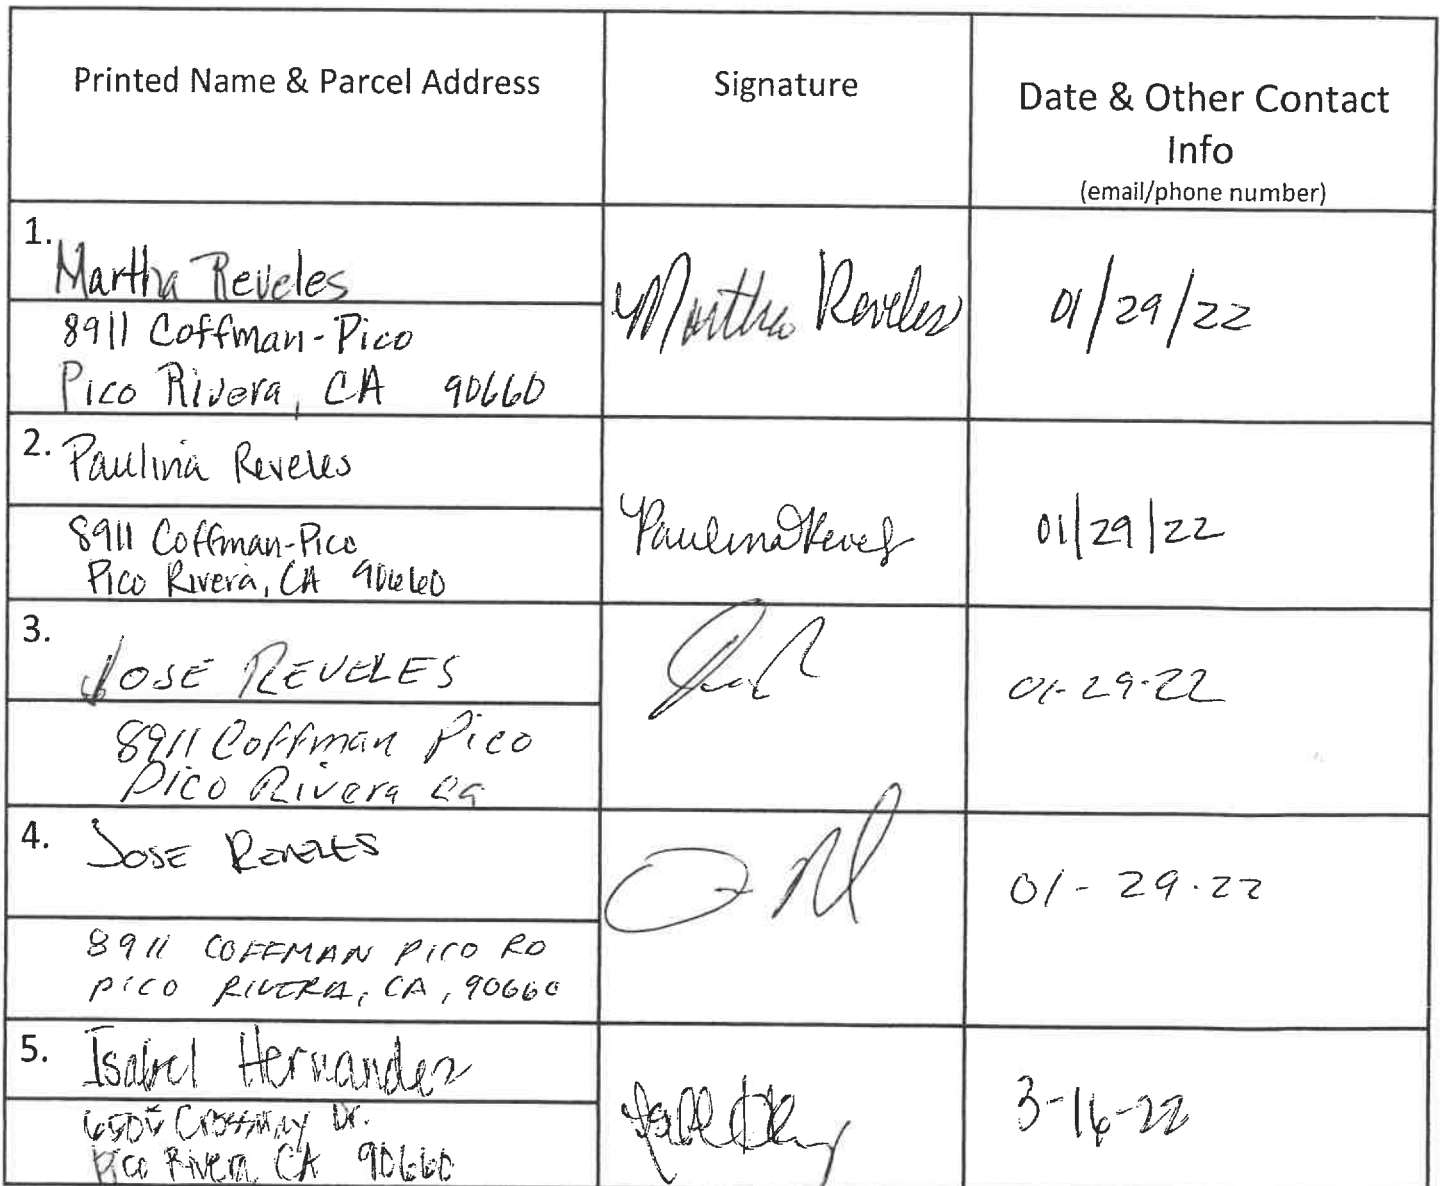 Printed Name & Parcel Address
Signature
Date & Other Contact
Info
(email/phone number)
1.
Martha Reveles
8911 Coffman-Pico
Pico Rivera, CA 90660
Martha Reveles
01/29/22
2. Paulina Reveles
8911 Coffman-Pico
Pico Rivera, CA 90660
01/29/22
3.
JOSE REVELES
8911 Coffman Pico
Pico Rivera ca
01-29-22
4. JOSE REVELES
8911 COFFMAN PICO RD
PICO RIVERA, CA, 90660
01-29-22
5. Isabel Hernandez
Crossway Dr.
Pico Rivera, CA 90660
3-16-22